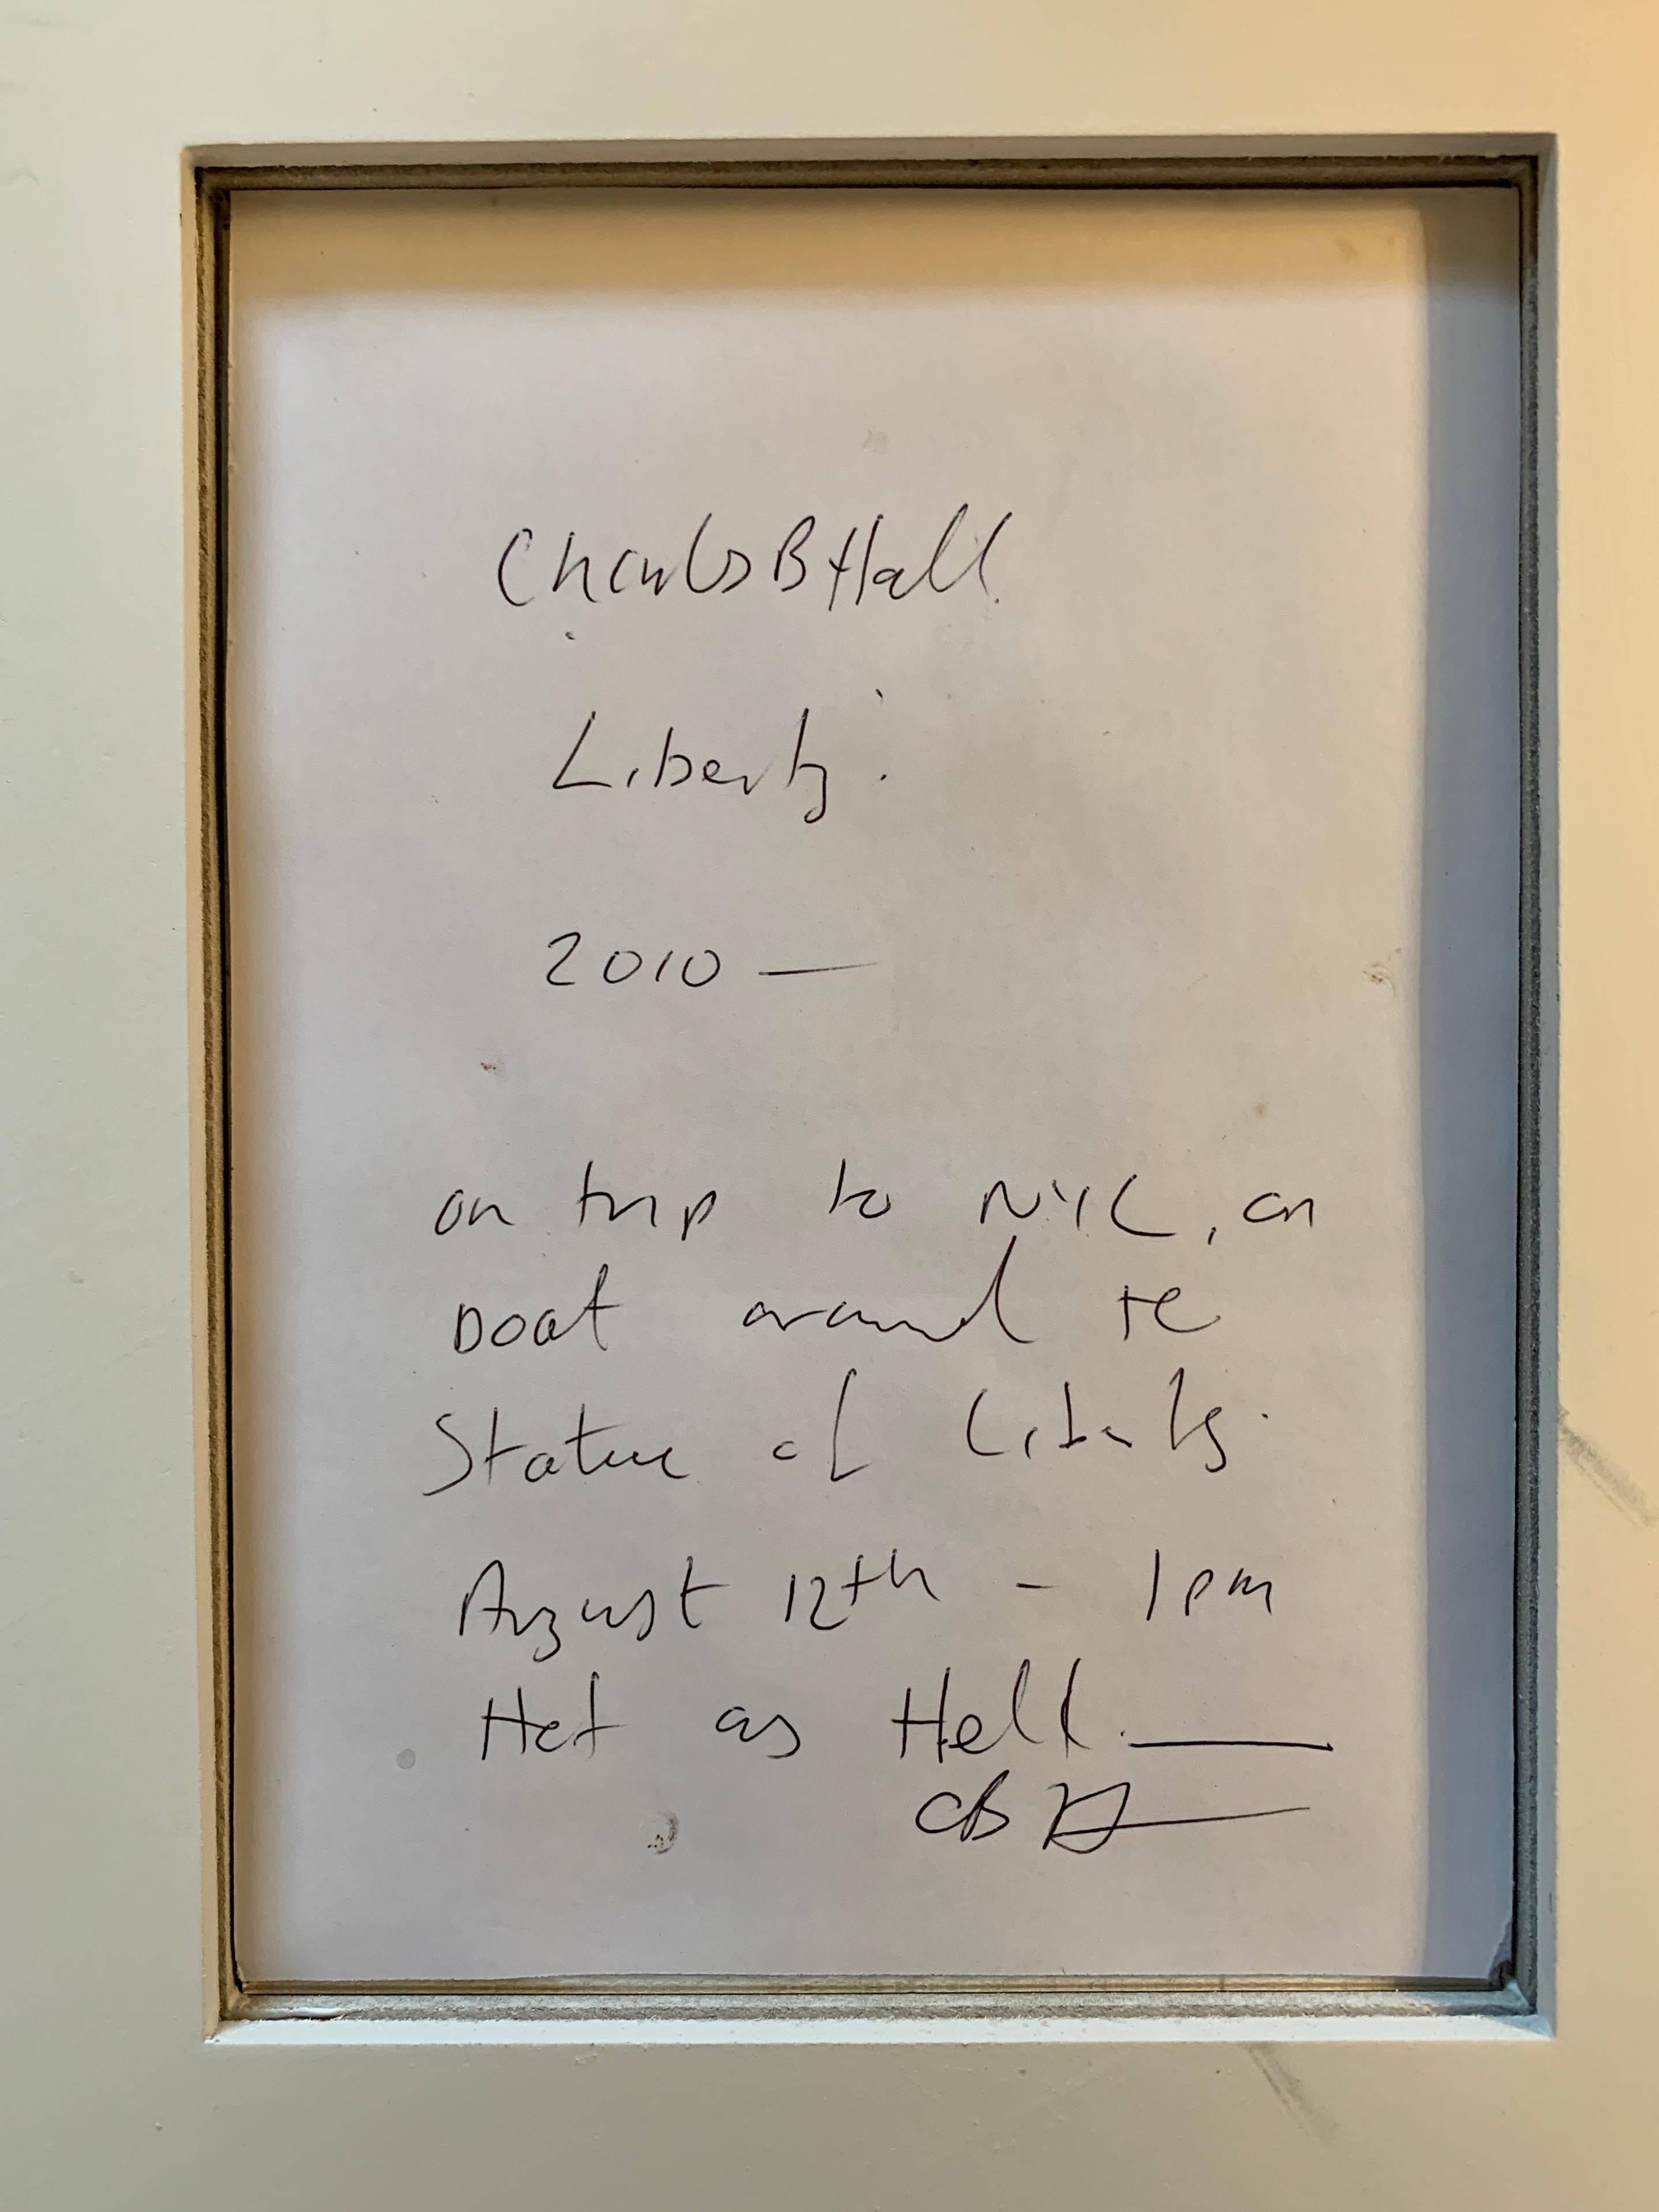 Charles B Hall.
Liberty.
2010 —
on trip to NYC, on
boat around the
Statue of Liberty.
August 12th - 1pm
Hot as Hell. —
CBH